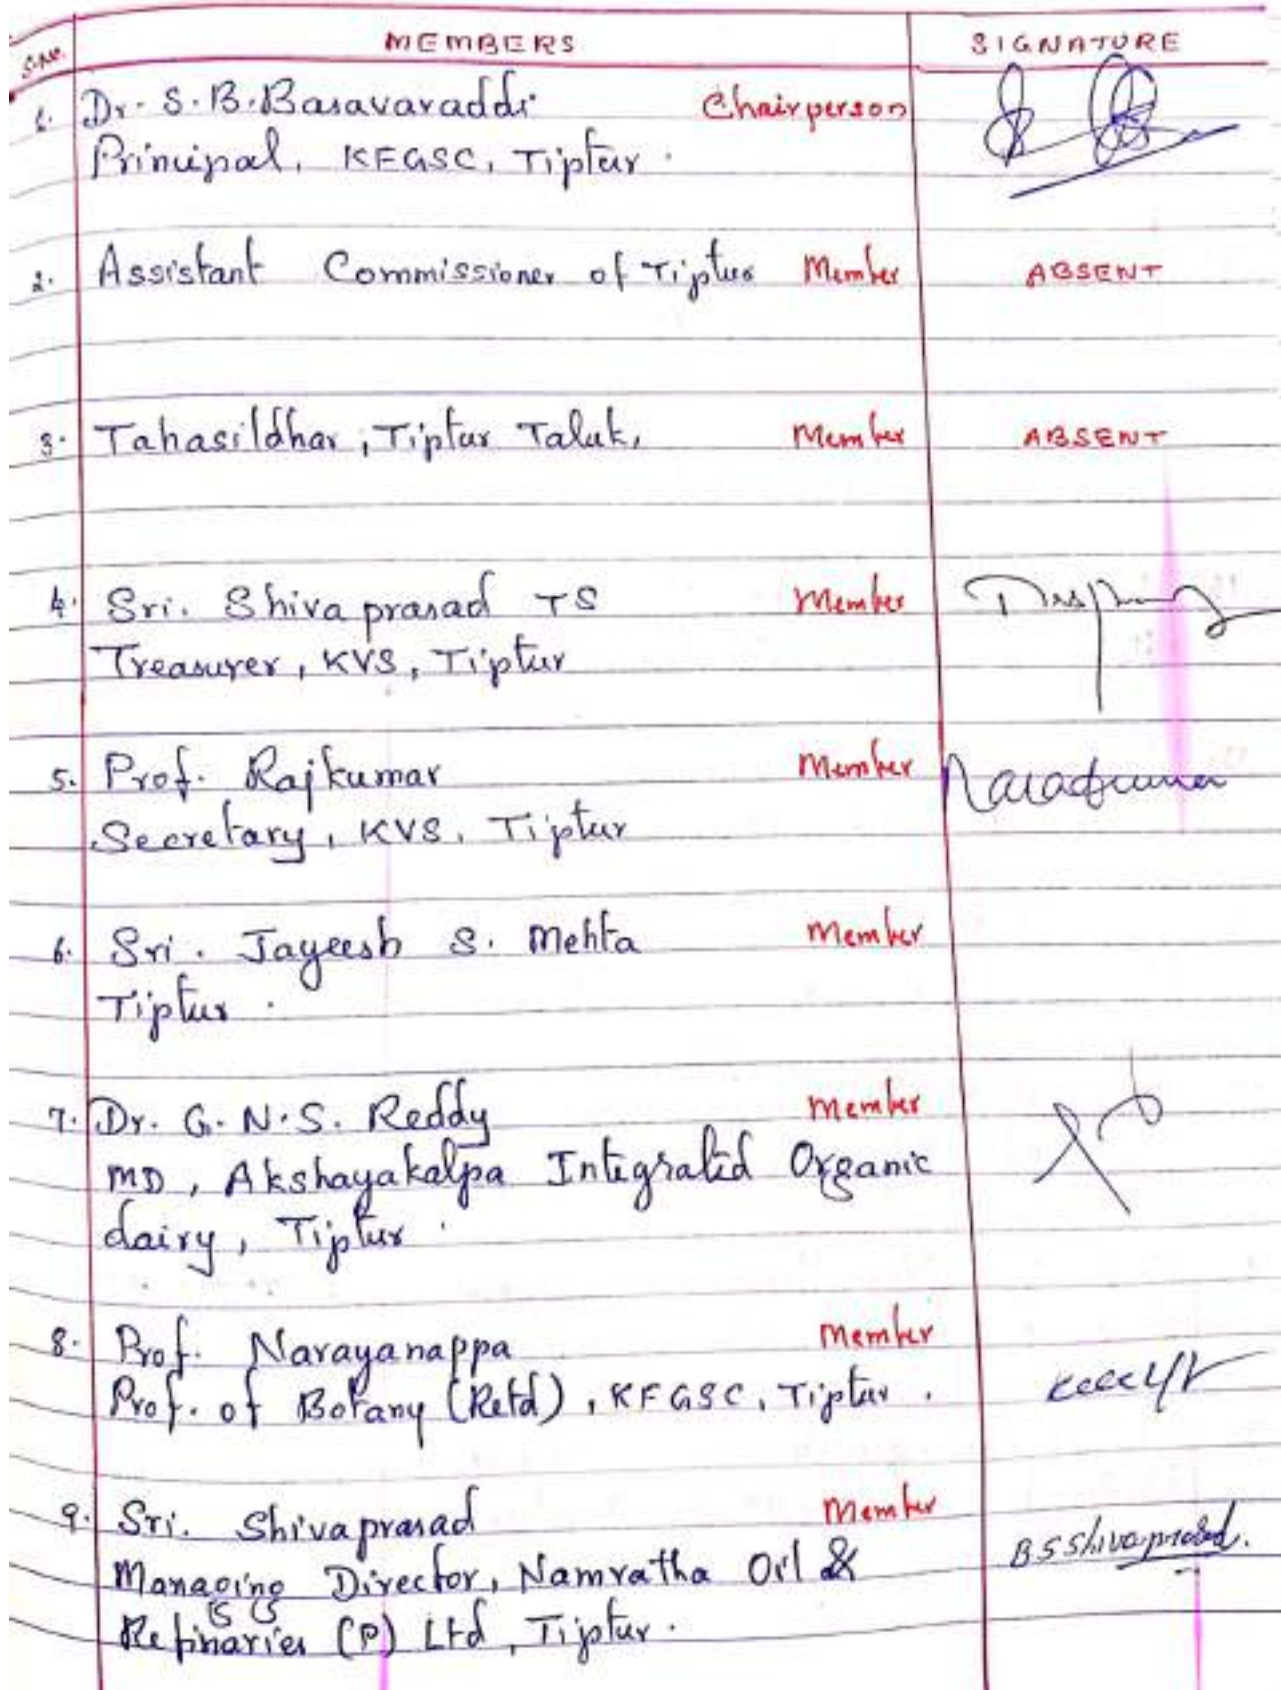 S.No. MEMBERS SIGNATURE
1. Dr. S. B. Basavaraddi Chairperson
Principal, KFGSC, Tiptur.
2. Assistant Commissioner of Tiptur Member ABSENT
3. Tahasildhar, Tiptur Taluk, Member ABSENT
4. Sri. Shivaprasad TS Member
Treasurer, KVS, Tiptur
5. Prof. Rajkumar Member
Secretary, KVS, Tiptur
6. Sri. Jayeesh S. Mehta Member
Tiptur.
7. Dr. G. N. S. Reddy Member
MD, Akshayakalpa Integrated Organic
dairy, Tiptur.
8. Prof. Narayanappa Member
Prof. of Botany (Retd), KFGSC, Tiptur.
9. Sri. Shivaprasad Member BSShivaprasad.
Managing Director, Namratha Oil &
Refinaries (P) Ltd, Tiptur.